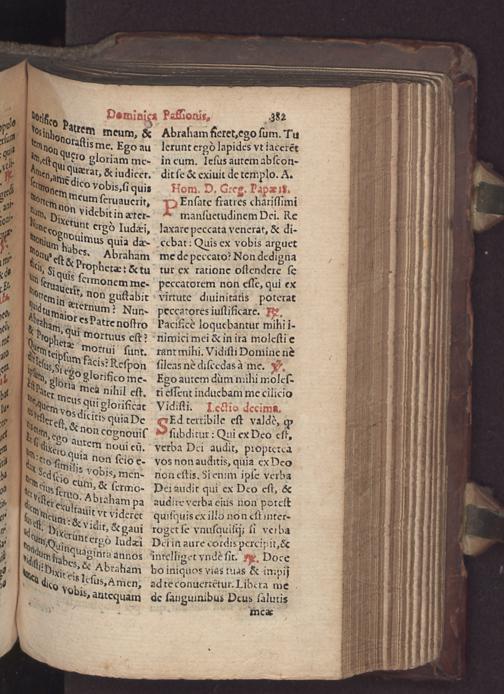 Dominica Passionis. 382
norifico Patrem meum, &
vos inhonorastis me. Ego au
tem non quęro gloriam me-
am, est qui quærat, & iudicet.
Amen, amē dico vobis, si quis
sermonem meum seruauerit,
mortem non videbit in æter-
num. Dixerunt ergò Iudæi,
Nunc cognouimus quia dæ-
monium habes. Abraham
mortuus est & Prophetæ: & tu
dicis, Si quis sermonem me-
um seruauerit, non gustabit
mortem in æternum? Nun-
quid tu maior es Patre nostro
Abraham, qui mortuus est?
& Prophetæ mortui sunt.
Quem teipsum facis? Respon
Iesus, Si ego glorifico me-
ipsum, gloria mea nihil est.
est Pater meus qui glorificat
me, quem vos dicitis quia De
us vester est, & non cognouis
tis eum, ego autem noui eū.
Et si dixero quia non scio e-
um: ero similis vobis, men-
dax. Sed scio eum, & sermo-
nem eius seruo. Abraham pa
ter vester exultauit vt videret
diem meum: & vidit, & gaui
sus est. Dixerunt ergò Iudæi
ad eum, Quinquaginta annos
nondum habes, & Abraham
vidisti? Dixit eis Iesus, Amen,
amen dico vobis, antequam
Abraham fieret, ego sum. Tu
lerunt ergò lapides vt iacerēt
in eum. Iesus autem abscon-
dit se & exiuit de templo. A.
Hom. D. Greg. Papæ 18.
PEnsate fratres charissimi
mansuetudinem Dei. Re
laxare peccata venerat, & di-
cebat: Quis ex vobis arguet
me de peccato? Non dedigna
tur ex ratione ostendere se
peccatorem non esse, qui ex
virtute diuinitatis poterat
peccatores iustificare. ℟.
Pacificè loquebantur mihi i-
nimici mei & in ira molesti e
rant mihi. Vidisti Domine nè
sileas nè discedas à me. ℣.
Ego autem dùm mihi moles-
ti essent induebam me cilicio
Vidisti. Lectio decima.
SEd terribile est valdè, ꝙ
subditur: Qui ex Deo est,
verba Dei audit, propterea
vos non auditis, quia ex Deo
non estis. Si enim ipse verba
Dei audit qui ex Deo est, &
audire verba eius non potest
quisquis ex illo non est inter-
roget se vnusquisq; si verba
Dei in aure cordis percipit, &
intelliget vndè sit. ℟. Doce
bo iniquos vias tuas & impij
ad te conuertētur. Libera me
de sanguinibus Deus salutis
meæ